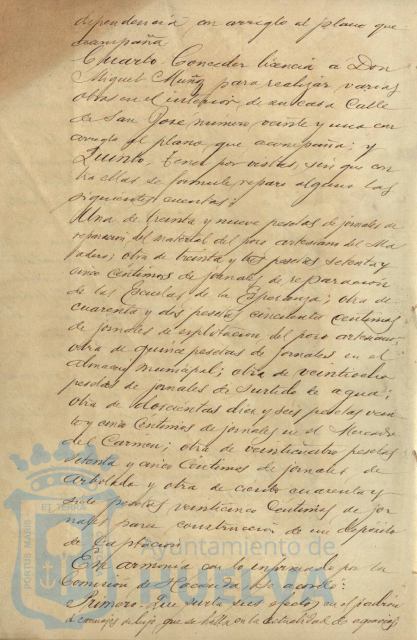 dependencia con arreglo al plano que
acompaña
Cuarto Conceder licencia a Don
Miguel Muñoz para realizar varias
obras en el interior de su casa Calle
de San José número veinte y una con
arreglo al plano que acompaña; y
Quinto. Tener por vistas, sin que con
tra ellas se formule reparo alguno las
siguientes cuentas:
Una de treinta y nueve pesetas de jornales de
reparación del material del pozo artesiano del Ma
tadero; otra de treinta y tres pesetas setenta y
cinco céntimos de jornales de reparación
de las Escuelas de la Esperanza; otra de
cuarenta y dos pesetas cincuenta céntimos
de jornales de explotación del pozo artesiano
otra de quince pesetas de jornales en el
almacén municipal; otra de veinticuatro
pesetas de jornales de surtido de agua;
otra de doscientas diez y seis pesetas vein
te y cinco céntimos de jornales en el Mercado
del Carmen; otra de veinticuatro pesetas
setenta y cinco céntimos de jornales de
arbolado y otra de ciento cuarenta y
siete pesetas veinticinco céntimos de jor
nales para construcción de un depósito
de captación
En armonía con lo informado por la
Comisión de Hacienda se acordó:
Primero. Que surta sus efectos en el padrón
de que se halla en la actualidad de
PORTUS MARIS ET TERRAE
Ayuntamiento de
HUELVA